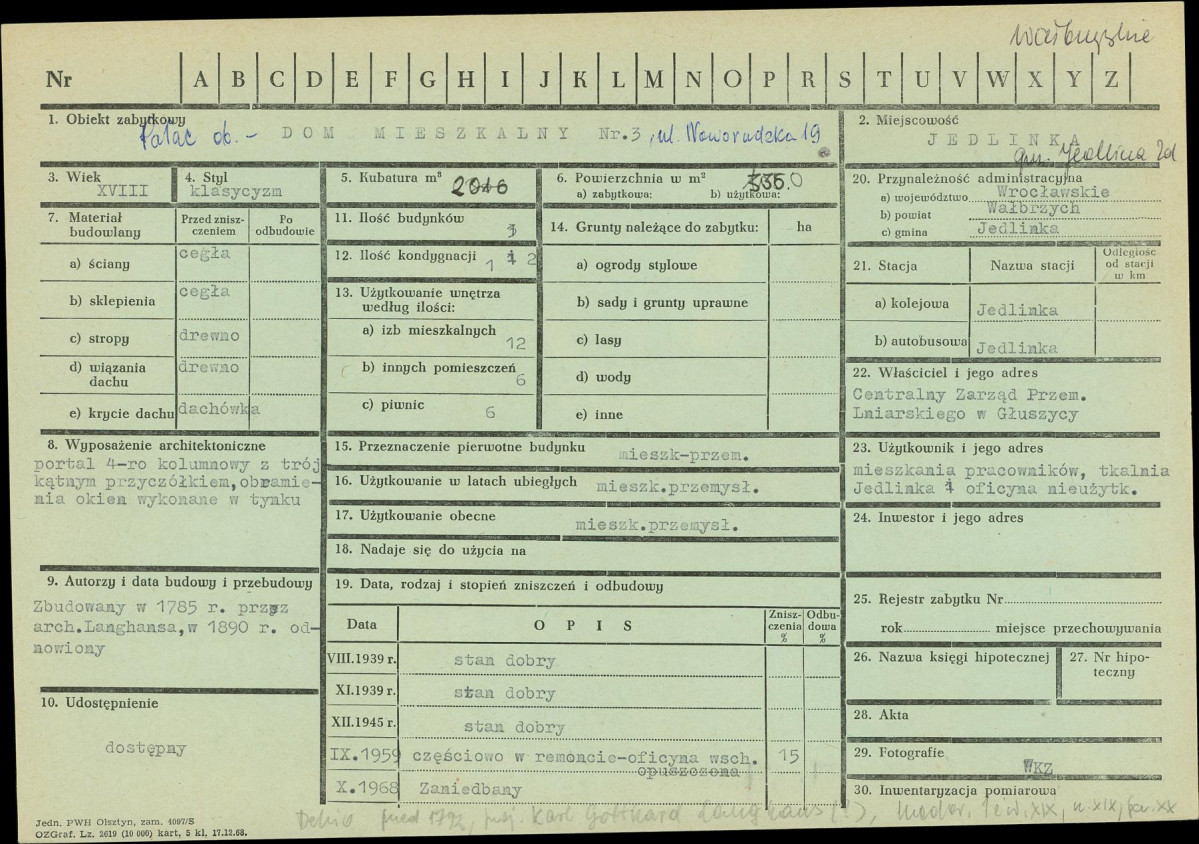 Wałbrzyskie
Nr A B C D E F G H I J K L M N O P R S T U V W X Y Z
1. Obiekt zabytkowy
Pałac ob. – DOM MIESZKALNY Nr.3, ul. Noworudzka 19
2. Miejscowość
JEDLINKA
gm. Jedlina Zd
3. Wiek
XVIII
4. Styl
klasycyzm
5. Kubatura m³
2016
6. Powierzchnia w m²
a) zabytkowa: b) użytkowa:
20. Przynależność administracyjna
a) województwo Wrocławskie
b) powiat Wałbrzych
c) gmina Jedlinka
7. Materiał budowlany
Przed zniszczeniem
Po odbudowie
a) ściany cegła
b) sklepienia cegła
c) stropy drewno
d) wiązania dachu drewno
e) krycie dachu dachówka
11. Ilość budynków
3
12. Ilość kondygnacji
1 i 2
13. Użytkowanie wnętrza według ilości:
a) izb mieszkalnych 12
b) innych pomieszczeń 6
c) piwnic 6
14. Grunty należące do zabytku: ha
a) ogrody stylowe
b) sady i grunty uprawne
c) lasy
d) wody
e) inne
21. Stacja
Nazwa stacji
Odległość od stacji w km
a) kolejowa Jedlinka
b) autobusowa Jedlinka
22. Właściciel i jego adres
Centralny Zarząd Przem.
Lniarskiego w Głuszycy
8. Wyposażenie architektoniczne
portal 4-ro kolumnowy z trój
kątnym przyczółkiem,obramie-
nia okien wykonane w tynku
15. Przeznaczenie pierwotne budynku
mieszk-przem.
16. Użytkowanie w latach ubiegłych mieszk.przemysł.
17. Użytkowanie obecne
mieszk.przemysł.
18. Nadaje się do użycia na
23. Użytkownik i jego adres
mieszkania pracowników, tkalnia
Jedlinka i oficyna nieużytk.
24. Inwestor i jego adres
9. Autorzy i data budowy i przebudowy
Zbudowany w 1785 r. przez
arch.Langhansa,w 1890 r. od-
nowiony
10. Udostępnienie
dostępny
19. Data, rodzaj i stopień zniszczeń i odbudowy
Data OPIS Zniszczenia % Odbudowa %
VIII.1939 r. stan dobry
XI.1939 r. stan dobry
XII.1945 r. stan dobry
IX.1959 częściowo w remoncie-oficyna wsch. 15
opuszczona
X.1968 Zaniedbany
25. Rejestr zabytku Nr
rok miejsce przechowywania
26. Nazwa księgi hipotecznej
27. Nr hipoteczny
28. Akta
29. Fotografie
WKZ
30. Inwentaryzacja pomiarowa
Dehio przed 1792, proj. Karl Gotthard Langhans (?), moder. 1 ćw. XIX, k. XIX, pocz. XX
Jedn. PWH Olsztyn, zam. 4097/S
OZGraf. Lz. 2619 (10 000) kart, 5 kl, 17.12.68.